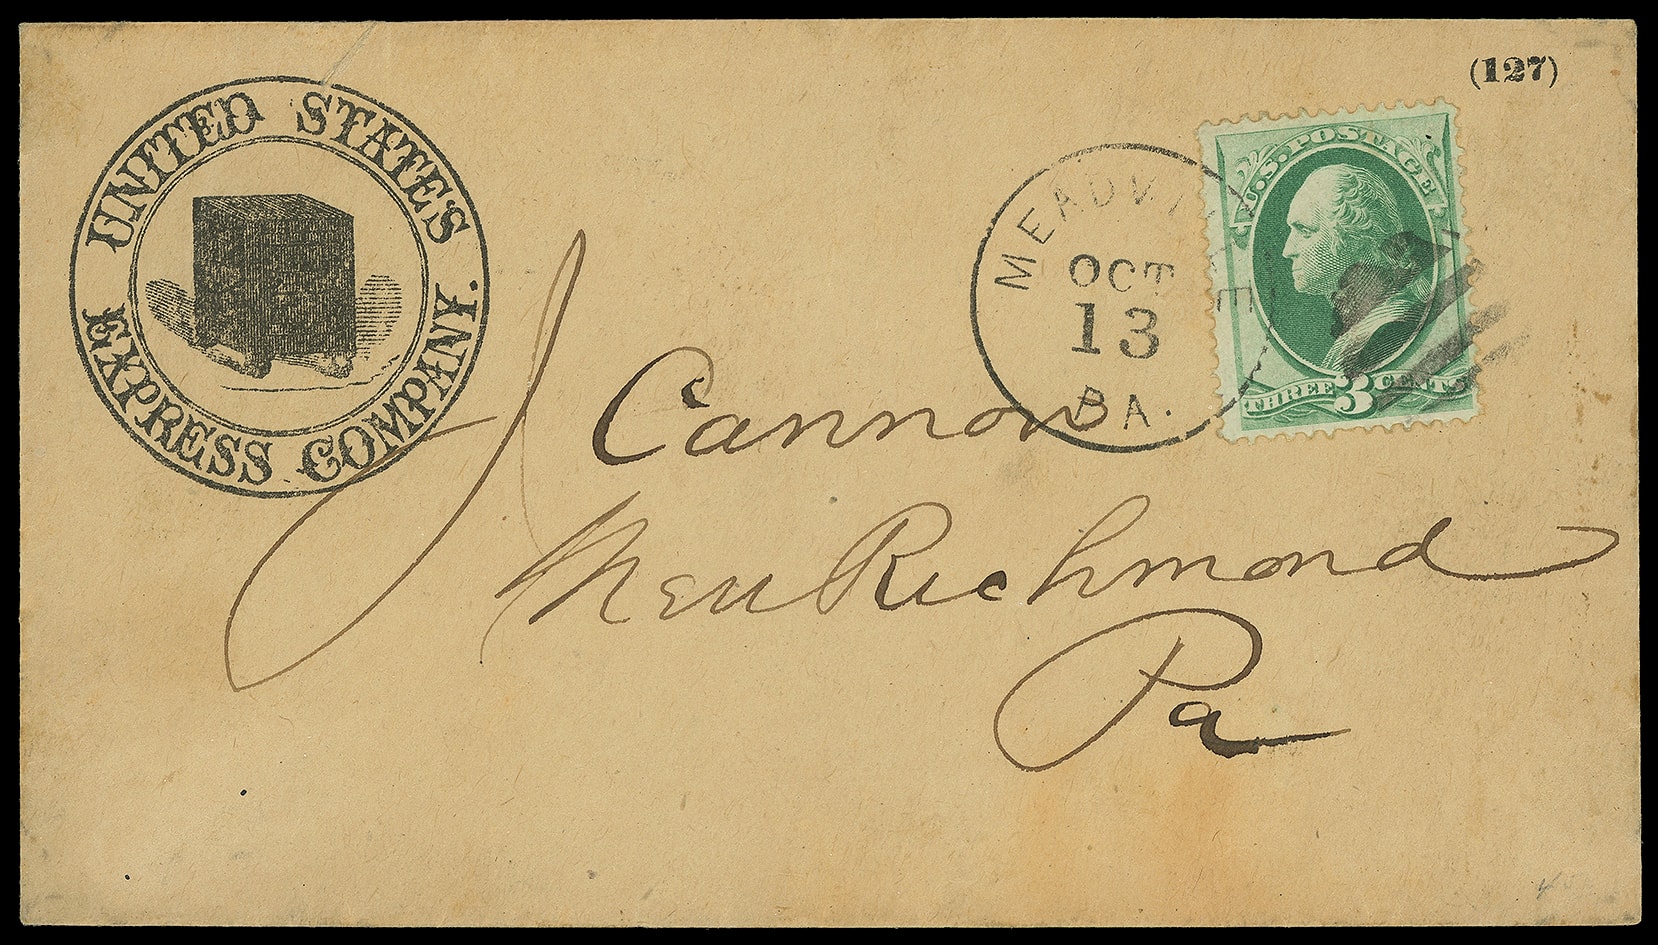 (127)
UNITED STATES
EXPRESS COMPANY.
MEADVILLE
OCT
13
PA.
U.S. POSTAGE
THREE 3 CENTS
J Cannon
New Richmond
Pa